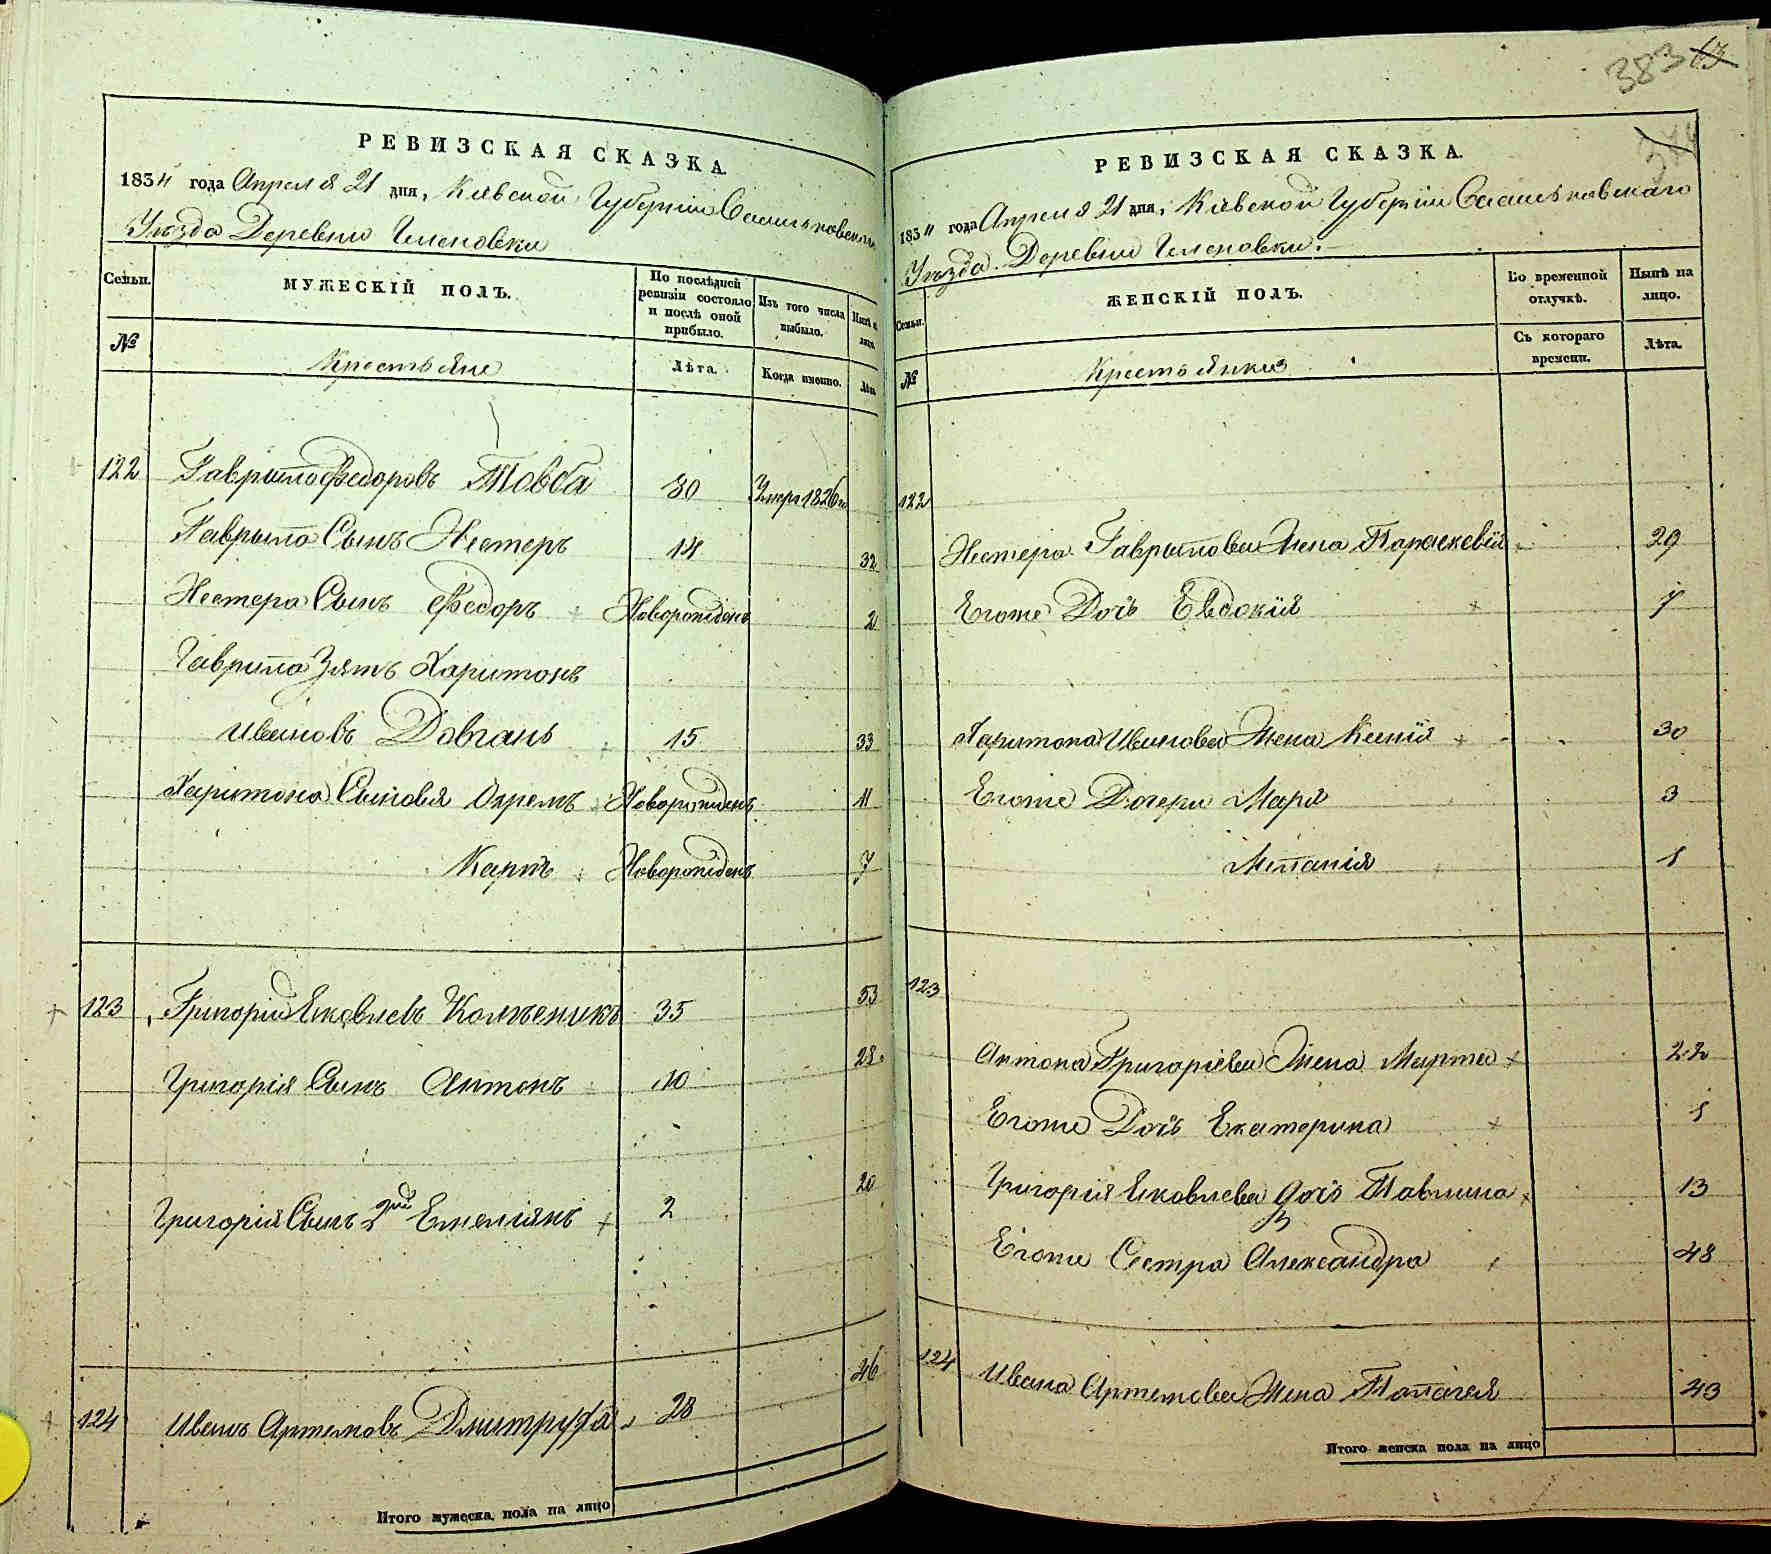 383 13
РЕВИЗСКАЯ СКАЗКА.
1834 года Апреля 21 дня, Кіевской Губерніи
Уѣзда Деревни
Семьи.
МУЖЕСКІЙ ПОЛЪ.
По послѣдней ревизіи состояло и послѣ оной прибыло.
Изъ того числа выбыло.
Нынѣ на лицо.
№
Крестьяне
Лѣта.
Когда именно.
Лѣта.
122 Гаврыло Федоровъ Товба 30 Умеръ 1826го
Гаврыла Сынъ Нестеръ 14 32
Нестера Сынъ Федоръ Новорожденъ 2
Гаврила Зять Харитонъ
Ивановъ Довгань 15 33
Харитона Сыновья Охремъ Новорожденъ 11
Карпъ Новорожденъ 7
123 Григорій Яковлевъ 35 53
Григорія Сынъ Антонъ 10 28
Григорія Сынъ 2й Емеліянъ 2 20
124 Иванъ Артемовъ Дмитруха 28 46
Итого мужеска пола на лицо
РЕВИЗСКАЯ СКАЗКА.
1834 года Апреля 21 дня, Кіевской Губерніи
Уѣзда Деревни
Семьи.
ЖЕНСКІЙ ПОЛЪ.
Во временной отлучкѣ.
Нынѣ на лицо.
№
Крестьянки
Съ котораго времени.
Лѣта.
122
Нестера Гаврылова Жена Параскевія 29
Егоже Дочь Евдокія 7
Харитона Иванова Жена Ксенія 30
Егоже Дочери Марія 3
Меланія 1
123
Антона Григоріева Жена Марта 22
Егоже Дочь Екатерина 1
Григорія Яковлева Дочь Павлина 13
Егоже Сестра Александра 48
124 Ивана Артемова Жена Палагея 43
Итого женска пола на лицо